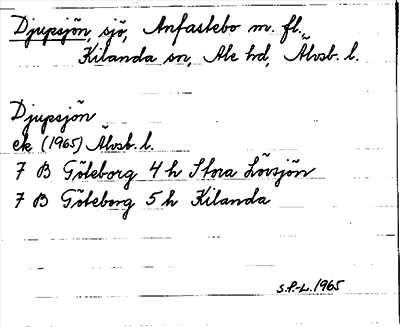 Djupsjön, sjö, Anfastebo m. fl.,
Kilanda sn, Ale hd, Älvsb. l.
Djupsjön
ek (1965) Älvsb. l.
7 B Göteborg 4 h Stora Lövsjön
7 B Göteborg 5 h Kilanda
S.P-L. 1965